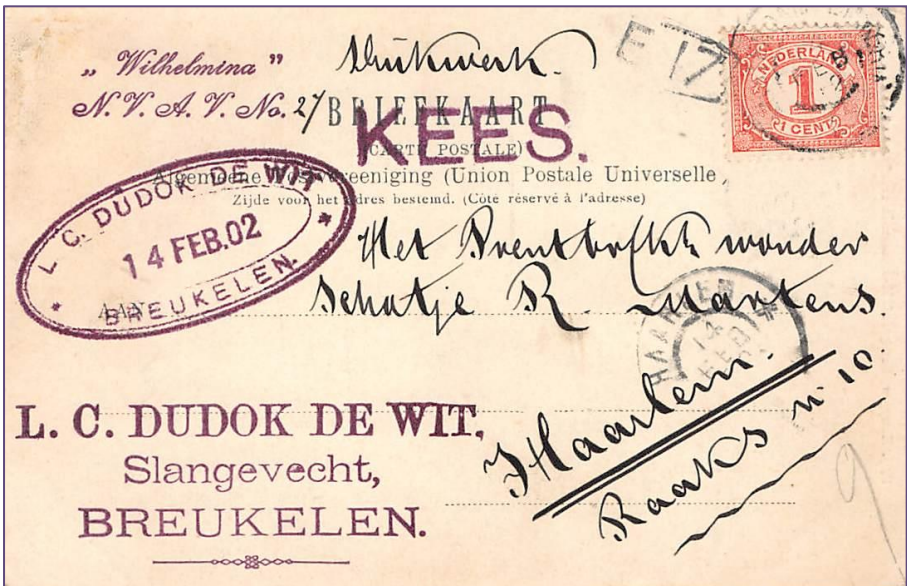 „ Wilhelmina ”
N. V. A. V. No. 27
Drukwerk.
E 17
NEDERLAND
1
1 CENT
BRIEFKAART
KEES.
(CARTE POSTALE)
Algemeene Postvereeniging (Union Postale Universelle
Zijde voor het adres bestemd. (Côté réservé à l'adresse)
L. C. DUDOK DE WIT
14 FEB.02
* BREUKELEN. *
AAN
Het wonder
Schatje R. Martens.
HAARLEM
14 FEB
Haarlem.
Raaks no 10
L. C. DUDOK DE WIT,
Slangevecht,
BREUKELEN.
9